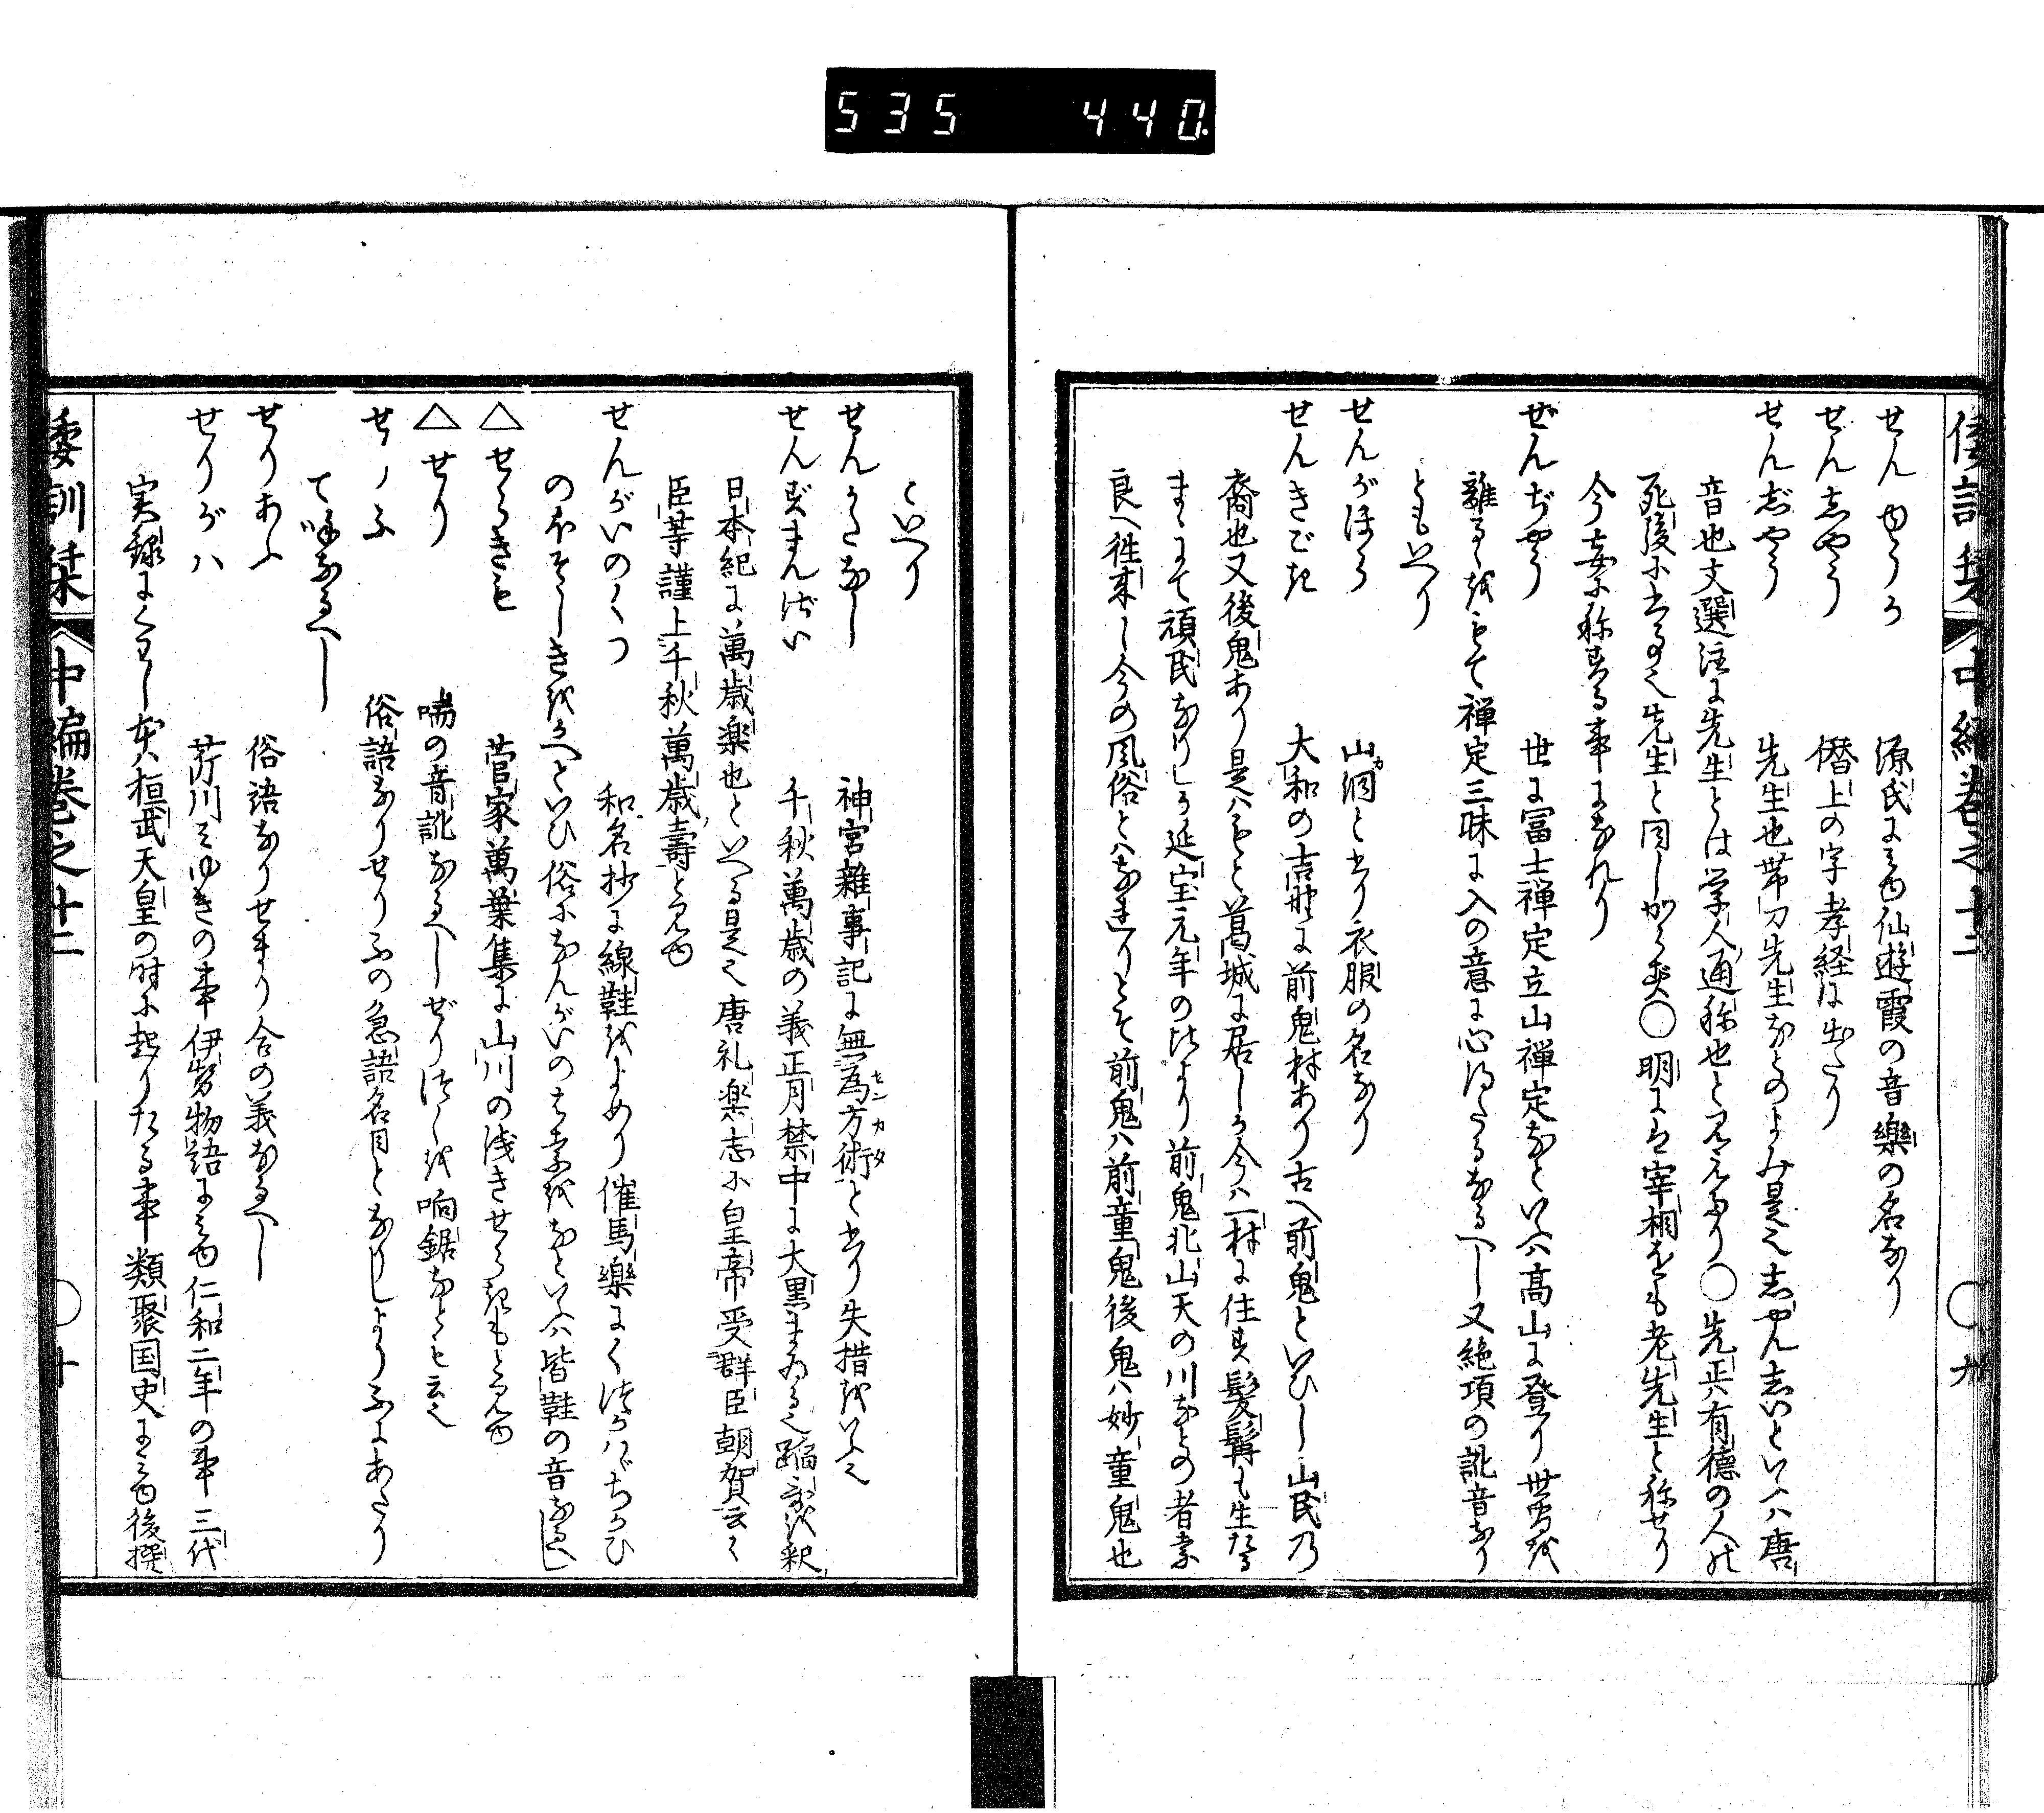 535 440.
倭訓栞 中編巻之十二 ○九
せんゆうか 源氏に見ゆ仙遊霞の音樂の名なり
せんしやう 僭上の字孝経に出たり
せんじやう 先生也帯刀先生なとのよみ是也しやんしいといふハ唐
音也文選注に先生とは学人通称也と見えたり○先正ハ有徳の人の
死後にいふ也先生と同しからす○明には宰相をも老先生と称せり
今妄に称する事になれり
ぜんぢやう 世に冨士禅定立山禅定なといふハ高山に登り世労を
離るゝをもて禅定三昧に入の意に心得たるなるへし又絶頂の訛音なり
ともいへり
せんがほう 山洞と書り衣服の名なり
せんきごき 大和の吉野に前鬼村あり古へ前鬼といひし山民乃
裔也又後鬼あり是ハもと葛城に居しか今ハ一村に住す髪髯も生たる
まゝにて頑民なりしか延宝元年の比より前鬼北山天の川なとの者奈
良へ徃来し今の風俗とハなれりとそ前鬼ハ前童鬼後鬼ハ妙童鬼也
といへり
せんかたなし 神宮雑事記に無為方術センカタと書り失措をいふ也
せんずまんざい 千秋萬歳の義正月禁中に大黒まゐる也踏歌を釈
日本紀に萬歳楽也といへる是也唐礼楽志に皇帝受群臣朝賀云々
臣等謹上千秋萬歳壽と見ゆ
せんがいのくつ 和名抄に線鞋をよめり催馬樂にくつかハゞちかひ
のほそしきをかへといひ俗になんがいのはきをなといふハ皆鞋の音なるへし
△せゝらきも 菅家萬葉集に山川の浅きせゝきもと見ゆ
△せり 喘の音訛なるへしぜりつくを响鋸なとも云也
せりふ 俗語なりせりふの急語名目となりしよりふにあたり
て略なるへし
せりあふ 俗語なりせまり合の義なるへし
せりがハ 芹川みゆきの事伊勢物語に見ゆ仁和二年の事三代
実録にくはし本ハ桓武天皇の時に起りたる事類聚国史に見ゆ後撰
倭訓栞 中編巻之十二 ○十